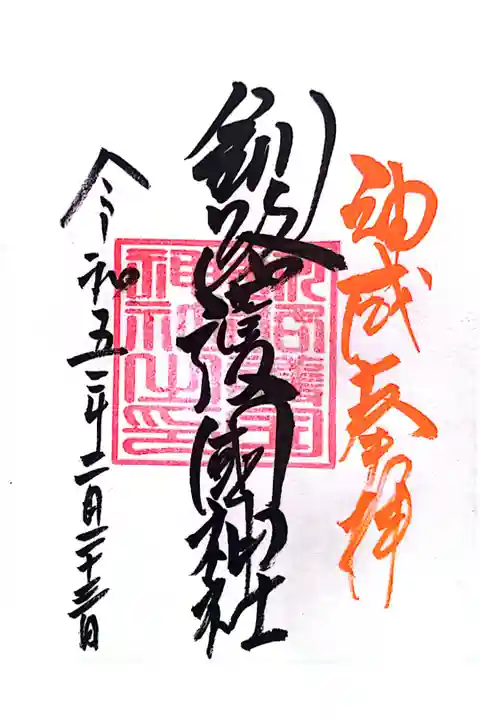 奉拝
釧路護國神社
令和五年二月二十三日
神社之印